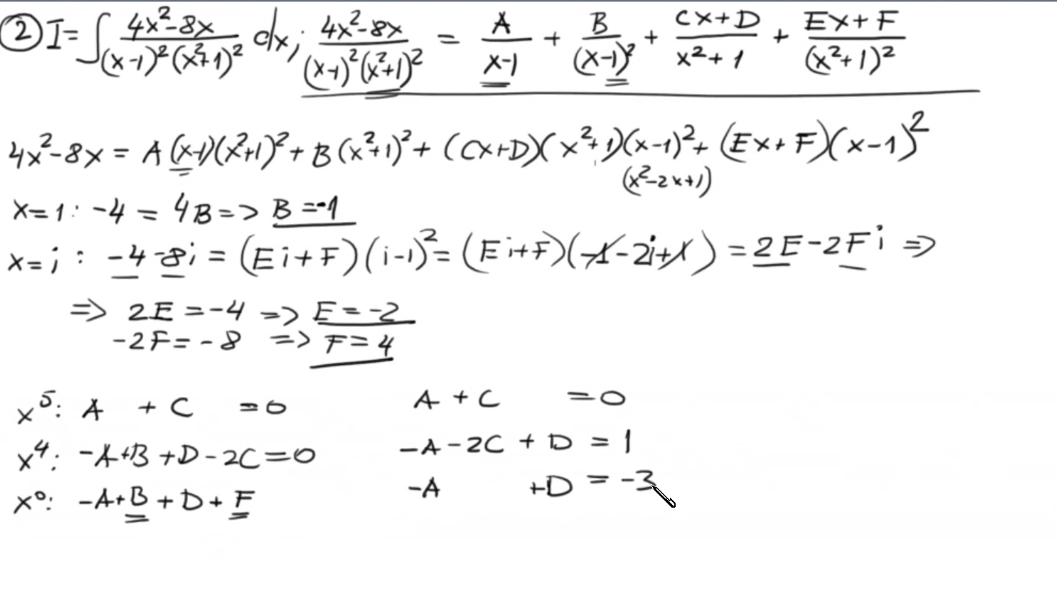 ② I = ∫ (4x²-8x)/((x-1)²(x²+1)²) dx; (4x²-8x)/((x-1)²(x²+1)²) = A/(x-1) + B/(x-1)² + (Cx+D)/(x²+1) + (Ex+F)/(x²+1)²
4x²-8x = A(x-1)(x²+1)² + B(x²+1)² + (Cx+D)(x²+1)(x-1)² + (Ex+F)(x-1)²
(x²-2x+1)
x=1: -4 = 4B => B=-1
x=i: -4-8i = (Ei+F)(i-1)² = (Ei+F)(-1-2i+1) = 2E-2Fi =>
=> 2E=-4 => E=-2
-2F=-8 => F=4
x⁵: A + C =0 A+C =0
x⁴: -A+B+D-2C=0 -A-2C+D=1
x⁰: -A+B+D+F -A +D=-3